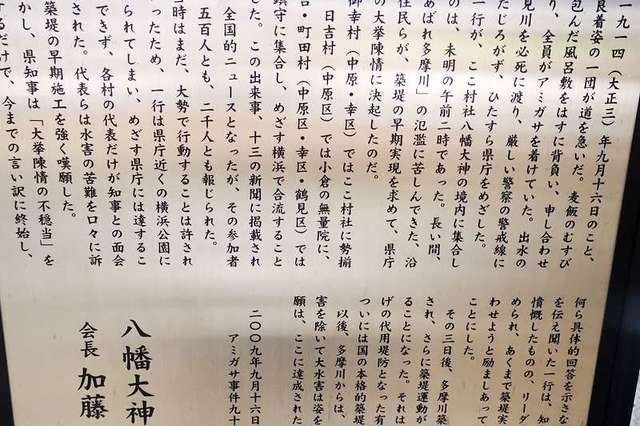 一九一四（大正三）年九月十六日のこと、
良着姿の一団が道を急いだ。麦飯のむすび
包んだ風呂敷をはすに背負い、申し合わせ
り、全員がアミガサを着けていた。出水の
見川を必死に渡り、厳しい警察の警戒線に
たじろがず、ひたすら県庁をめざした。
一行が、ここ村社八幡大神の境内に集合し
のは、未明の午前二時であった。長い間、
あばれ多摩川」の氾濫に苦しんできた、沿
住民らが、築堤の早期実現を求めて、県庁
の大挙陳情に決起したのだ。
御幸村（中原・幸区）ではここ村社に勢揃
日吉村（中原区）では小倉の無量院に、
・町田村（中原区・幸区・鶴見区）では
鎮守に集合し、めざす横浜で合流すること
した。この出来事、十三の新聞に掲載され
全国的ニュースとなったが、その参加者
五百人とも、二千人とも報じられた。
時はまだ、大勢で行動することは許され
ったため、一行は県庁近くの横浜公園に
られてしまい、めざす県庁には達するこ
できず、各村の代表だけが知事との面会
された。代表らは水害の苦難を口々に訴
築堤の早期施工を強く嘆願した。
かし、県知事は「大挙陳情の不穏当」を
するだけで、今までの言い訳に終始し、
何ら具体的回答を示さな
を伝え聞いた一行は、知
憤慨したものの、リーダ
められ、あくまで築堤実
わせようと励ましあって
ことにした。
その三日後、多摩川築
され、さらに築堤運動が
ることになった。それは
げの代用堤防となった有
ついには国の本格的築堤
以後、多摩川からは、
害を除いて大水害は姿を
願は、ここに達成された
二〇〇九年九月十六日
アミガサ事件九十
八幡大神
会長 加藤